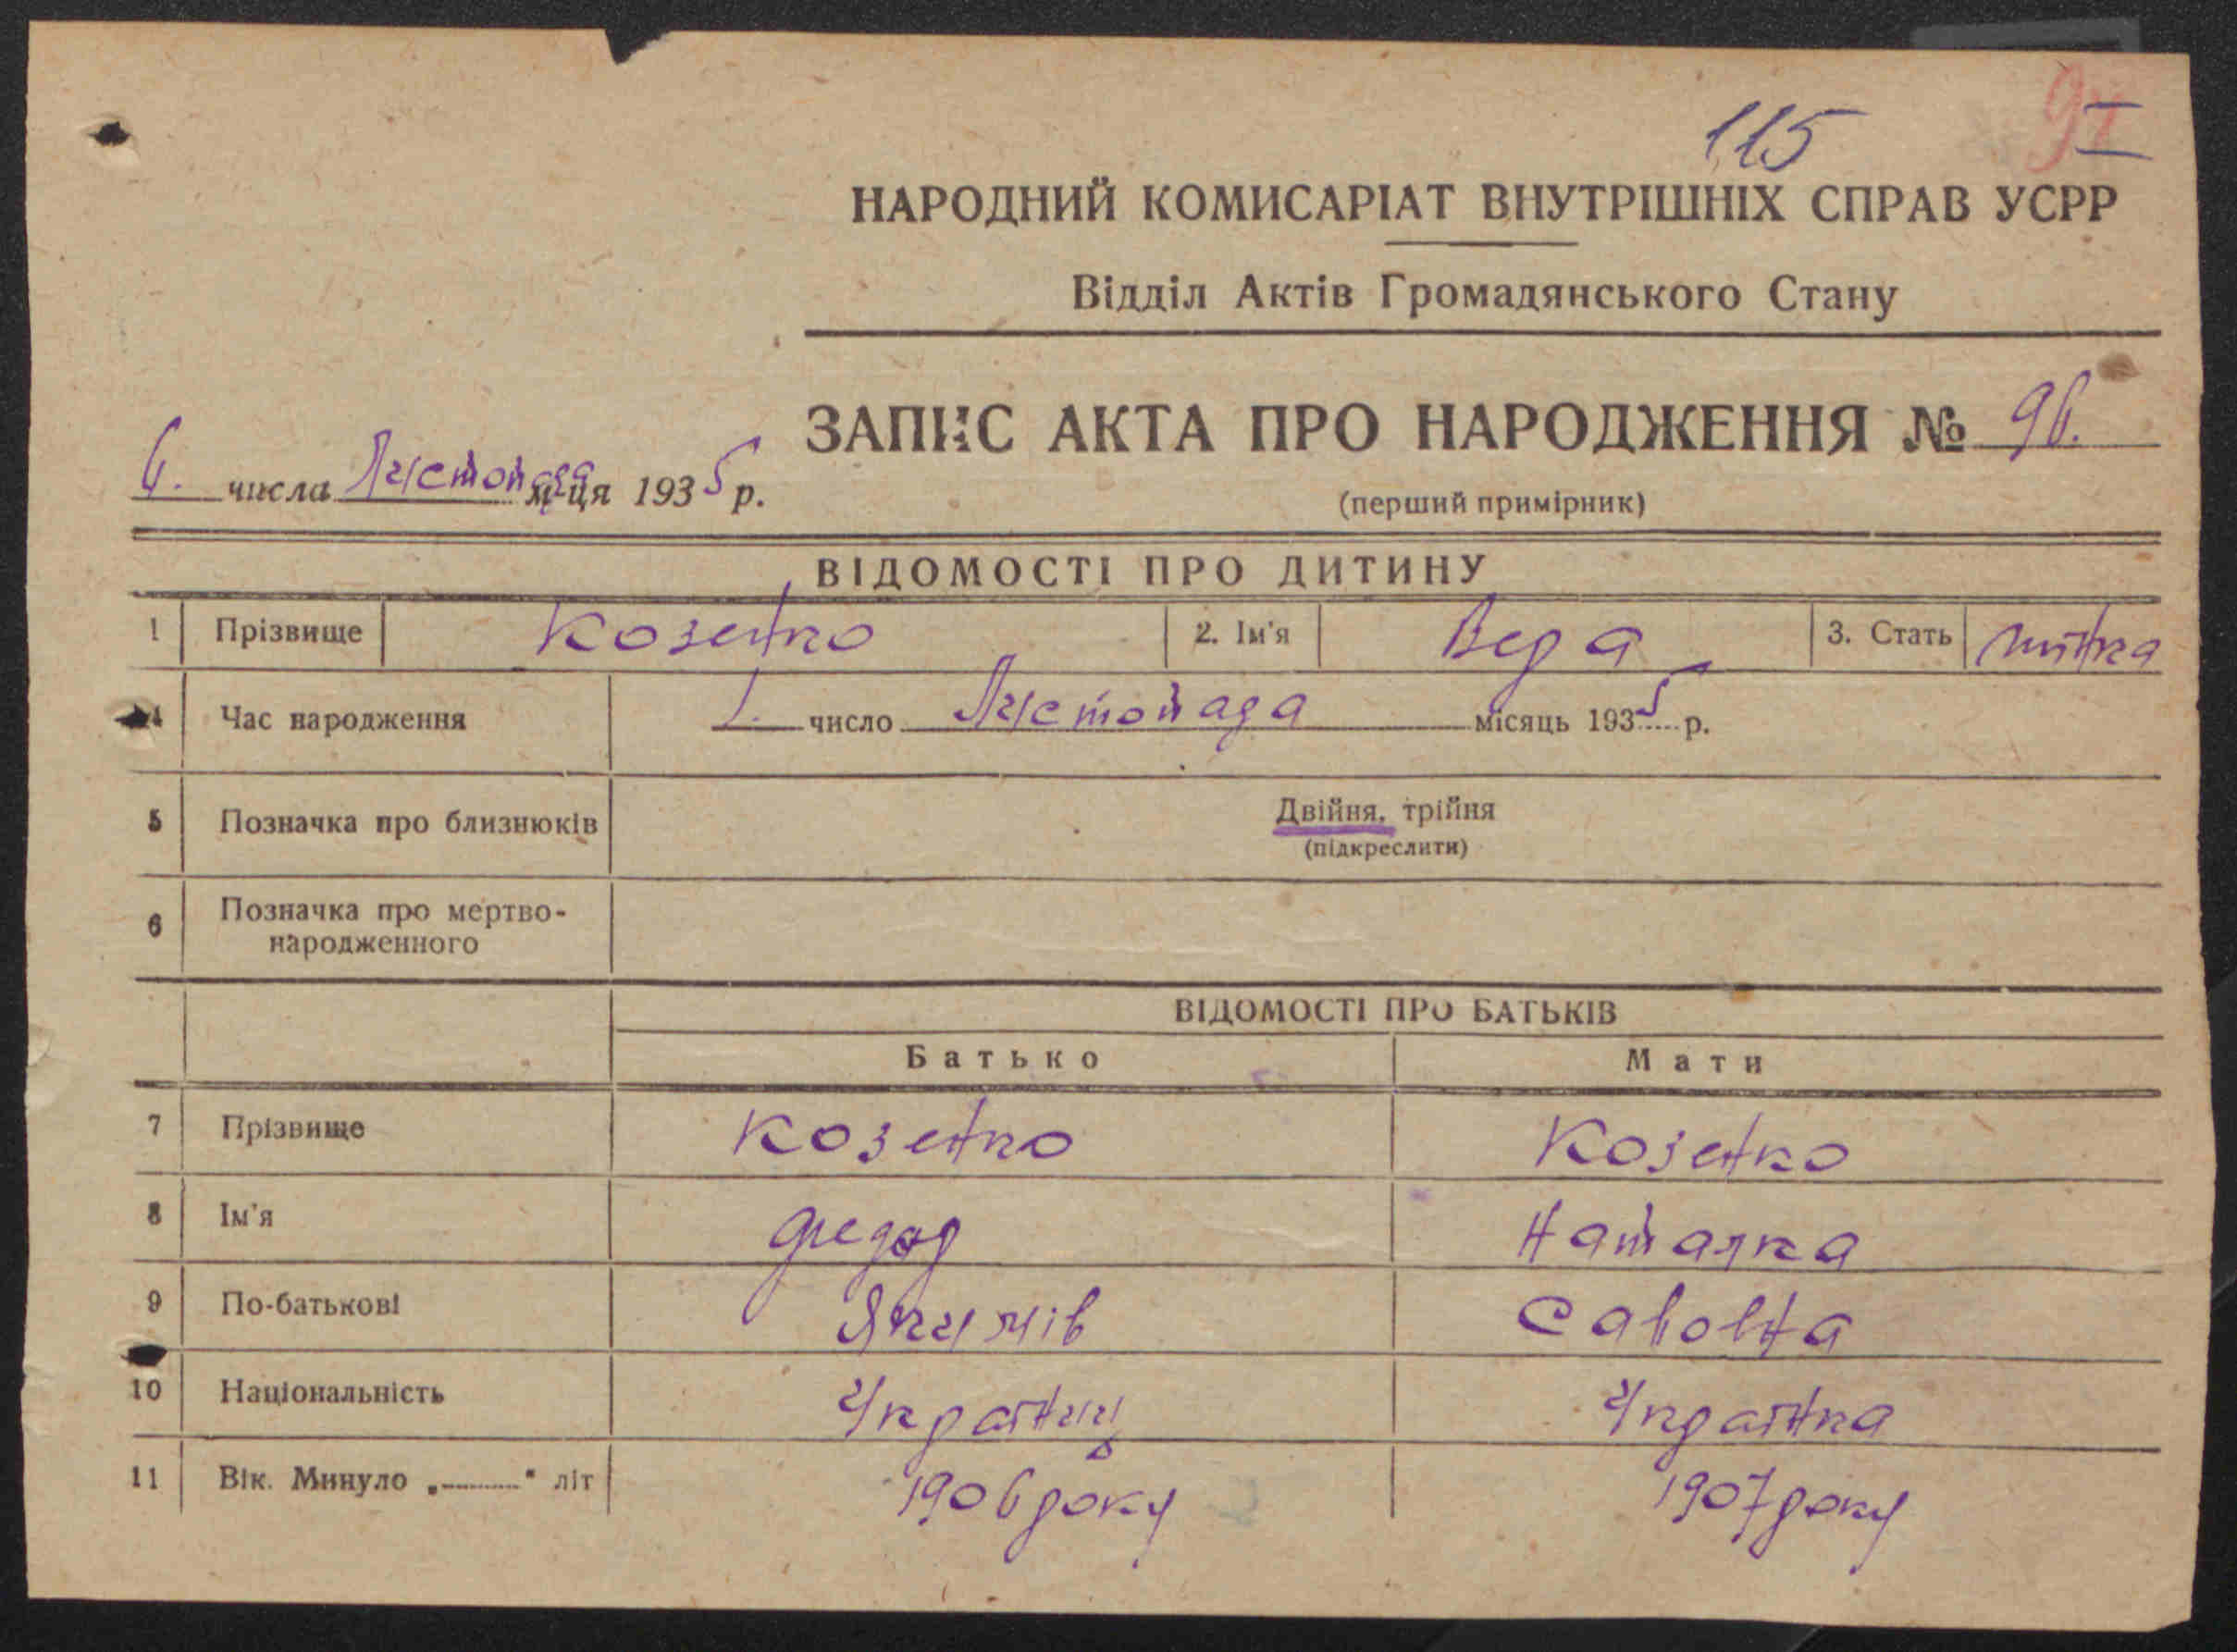 115
I
НАРОДНИЙ КОМИСАРІАТ ВНУТРІШНІХ СПРАВ УСРР
Відділ Актів Громадянського Стану
ЗАПИС АКТА ПРО НАРОДЖЕННЯ № 96.
6. числа Листопада м-ця 1935 р.
(перший примірник)
ВІДОМОСТІ ПРО ДИТИНУ
1 Прізвище Козенко 2. Ім'я Вера 3. Стать
4 Час народження 1. число Листопада місяць 1935 р.
5 Позначка про близнюків Двійня, трійня
(підкреслити)
6 Позначка про мертво-
народженного
ВІДОМОСТІ ПРО БАТЬКІВ
Батько Мати
7 Прізвище Козенко Козенко
8 Ім'я Федор Наталка
9 По-батькові Якимів Савовна
10 Національність Українец Українка
11 Вік. Минуло „ " літ 1906 року 1907 року